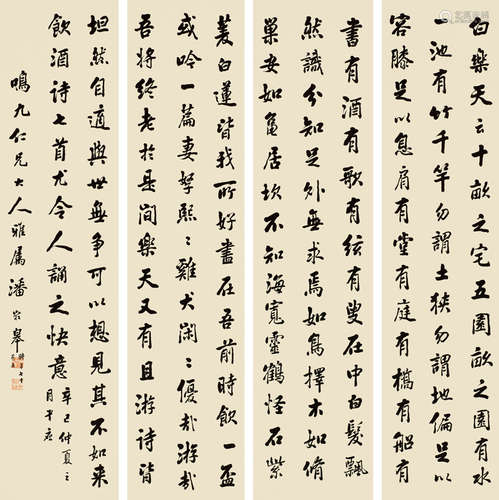 白樂天云十畝之宅五園有水
一池有竹千竿勿謂土狹勿謂地偏足以
容膝足以息肩有堂有庭有橋有船有
書有酒有歌有絃有叟在中白髮飄
然識分知足外無求焉如鳥擇木如脩
巢安如龜居坎不知海寬靈鶴怪石紫
菱白蓮皆我所好盡在吾前時飲一盃
或吟一篇妻孥熙〻雞犬閑〻優哉游哉
吾將終老於是間樂天又有且游詩皆
坦然自適與世無爭可以想見其不如來
飲酒詩七首尤令人誦之快意
辛巳仲夏之
月中
鳴九仁兄大人雅屬潘齡皋